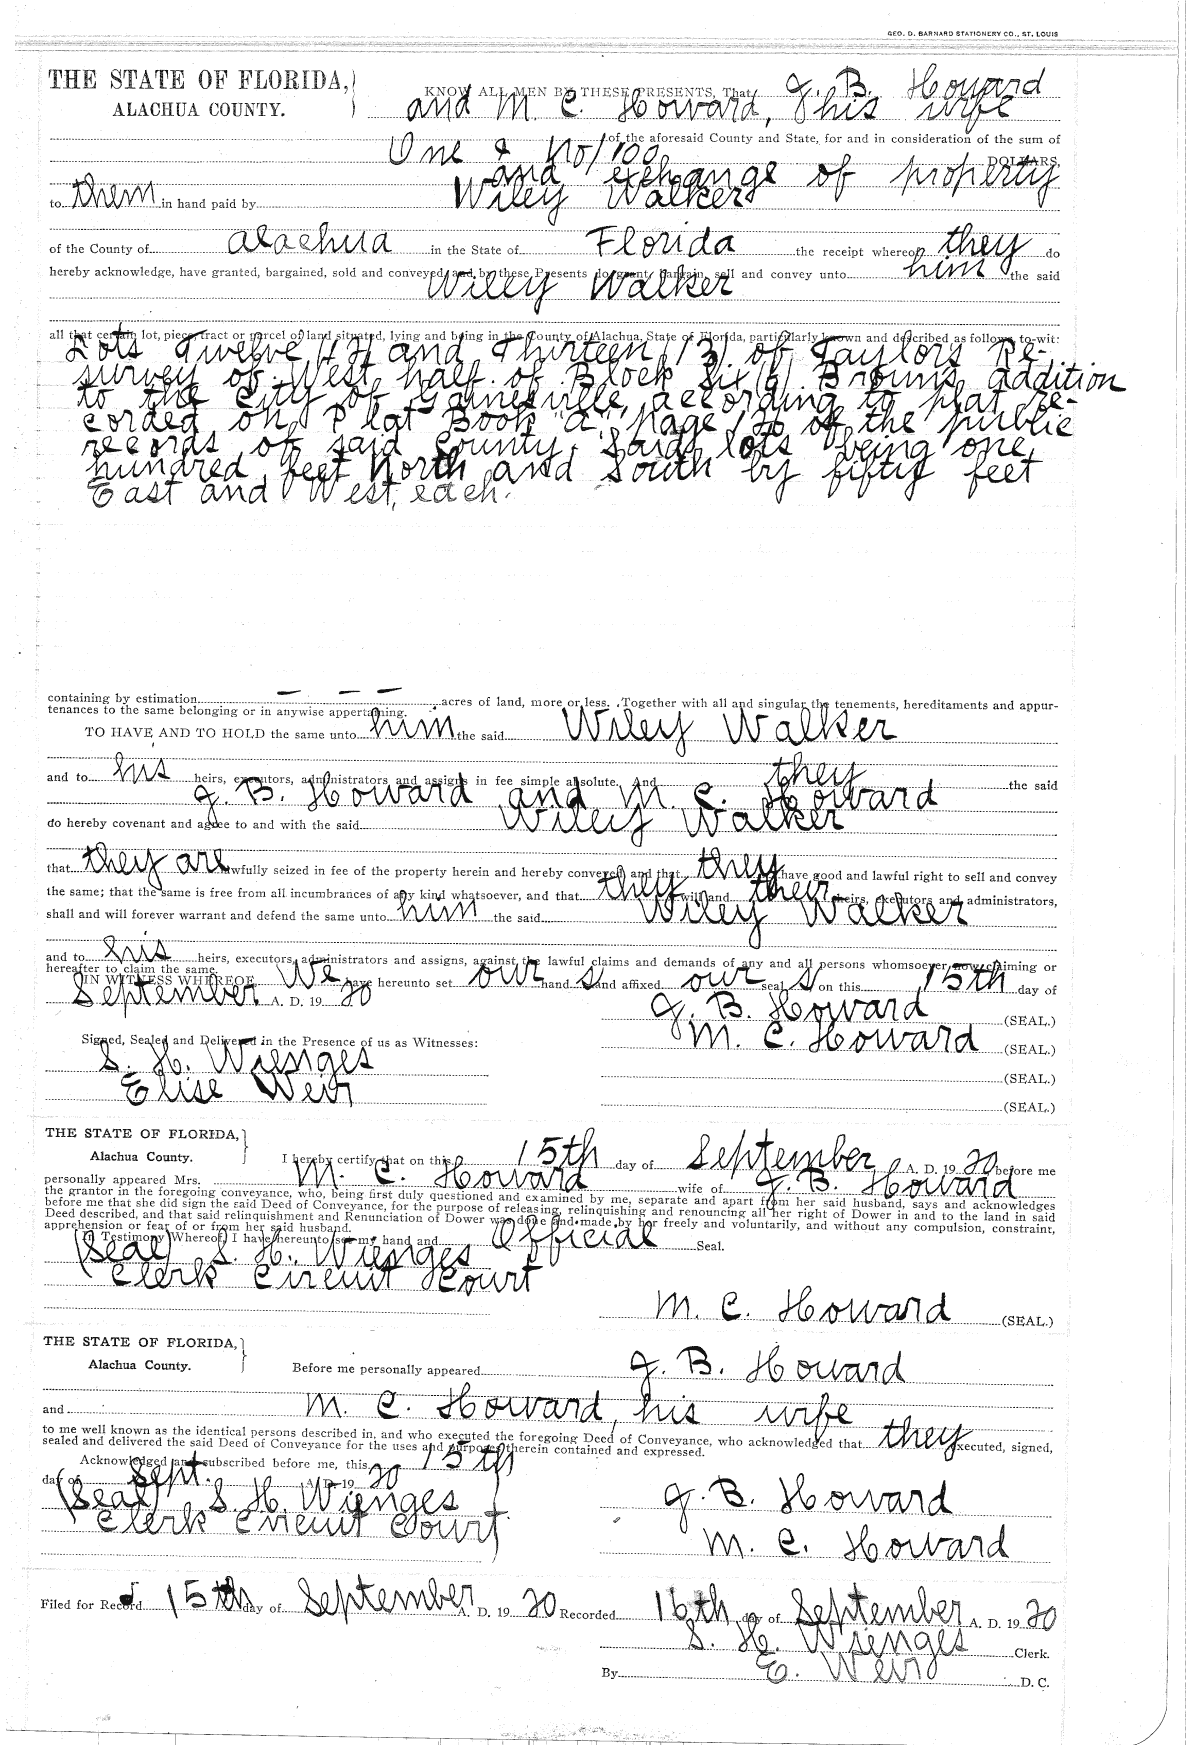 GEO. D. BARNARD STATIONERY CO., ST. LOUIS
THE STATE OF FLORIDA,
ALACHUA COUNTY.
KNOW ALL MEN BY THESE PRESENTS, That J. B. Howard
and M. C. Howard, his wife
of the aforesaid County and State, for and in consideration of the sum of
One & No/100 DOLLARS,
and exchange of property
to them in hand paid by Wiley Walker
of the County of Alachua in the State of Florida the receipt whereof they do
hereby acknowledge, have granted, bargained, sold and conveyed, and by these Presents do grant, bargain, sell and convey unto him the said
Wiley Walker
all that certain lot, piece, tract or parcel of land situated, lying and being in the County of Alachua, State of Florida, particularly known and described as follows, to-wit:
Lots Twelve (12) and Thirteen (13) of Taylors Re-
survey of West half of Block Six (6) Browns addition
to the City of Gainesville, according to plat re-
corded on Plat Book "a" page of the public
records of said County, Said lots being one
hundred feet North and South by fifty feet
East and West, each.
containing by estimation — — — acres of land, more or less. Together with all and singular the tenements, hereditaments and appur-
tenances to the same belonging or in anywise appertaining.
TO HAVE AND TO HOLD the same unto him the said Wiley Walker
and to his heirs, executors, administrators and assigns in fee simple absolute. And they the said
J. B. Howard and M. C. Howard
do hereby covenant and agree to and with the said Wiley Walker
that they are lawfully seized in fee of the property herein and hereby conveyed and that they have good and lawful right to sell and convey
the same; that the same is free from all incumbrances of any kind whatsoever, and that they will and their heirs, executors and administrators,
shall and will forever warrant and defend the same unto him the said Wiley Walker
and to his heirs, executors, administrators and assigns, against the lawful claims and demands of any and all persons whomsoever, now claiming or
hereafter to claim the same.
IN WITNESS WHEREOF, We have hereunto set our hand s and affixed our seal s on this 15th day of
September A. D. 19 20
J. B. Howard (SEAL.)
M. C. Howard (SEAL.)
Signed, Sealed and Delivered in the Presence of us as Witnesses:
S. H. Wienges
(SEAL.)
Elise Weir
(SEAL.)
THE STATE OF FLORIDA,
Alachua County.
I hereby certify that on this 15th day of September A. D. 19 20 before me
personally appeared Mrs. M. C. Howard wife of J. B. Howard
the grantor in the foregoing conveyance, who, being first duly questioned and examined by me, separate and apart from her said husband, says and acknowledges
before me that she did sign the said Deed of Conveyance, for the purpose of releasing, relinquishing and renouncing all her right of Dower in and to the land in said
Deed described, and that said relinquishment and Renunciation of Dower was done and made by her freely and voluntarily, and without any compulsion, constraint,
apprehension or fear of or from her said husband.
In Testimony Whereof, I have hereunto set my hand and Official Seal.
(Seal) S. H. Wienges
Clerk Circuit Court
M. C. Howard (SEAL.)
THE STATE OF FLORIDA,
Alachua County.
Before me personally appeared J. B. Howard
and M. C. Howard, his wife
to me well known as the identical persons described in, and who executed the foregoing Deed of Conveyance, who acknowledged that they executed, signed,
sealed and delivered the said Deed of Conveyance for the uses and purposes therein contained and expressed.
Acknowledged and subscribed before me, this 15th
day of Sept. A. D. 19 20
(Seal) S. H. Wienges
Clerk Circuit Court
J. B. Howard
M. C. Howard
Filed for Record 15th day of September A. D. 19 20 Recorded 16th day of September A. D. 19 20
S. H. Wienges Clerk.
By E. Weir D. C.